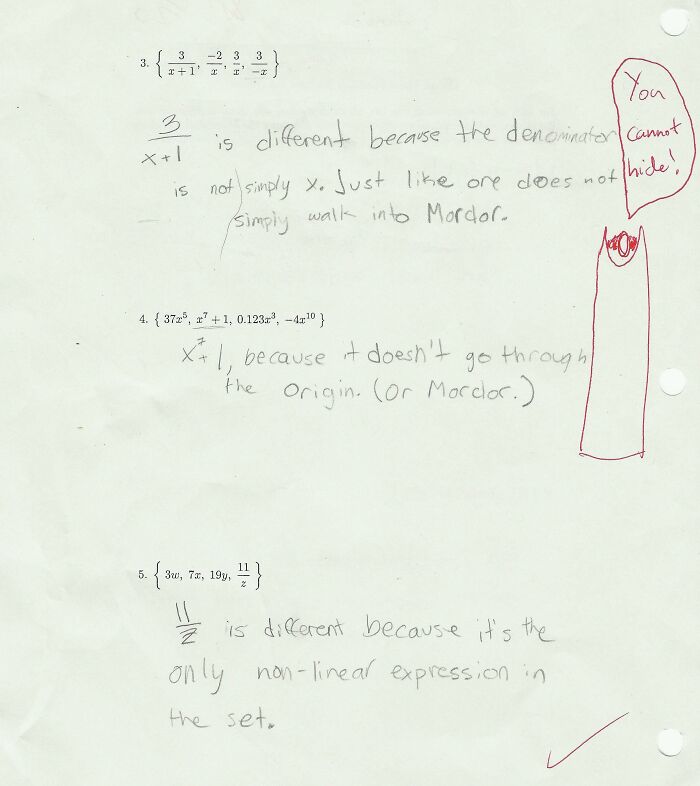 3. { 3/(x+1), -2/x, 3/x, 3/-x }
3/(x+1) is different because the denominator
is not simply x. Just like one does not
simply walk into Mordor.
You
cannot
hide!
4. { 37x⁵, x⁷ + 1, 0.123x³, −4x¹⁰ }
x⁷+1, because it doesn't go through
the origin. (Or Mordor.)
5. { 3w, 7x, 19y, 11/z }
11/z is different because it's the
only non-linear expression in
the set.